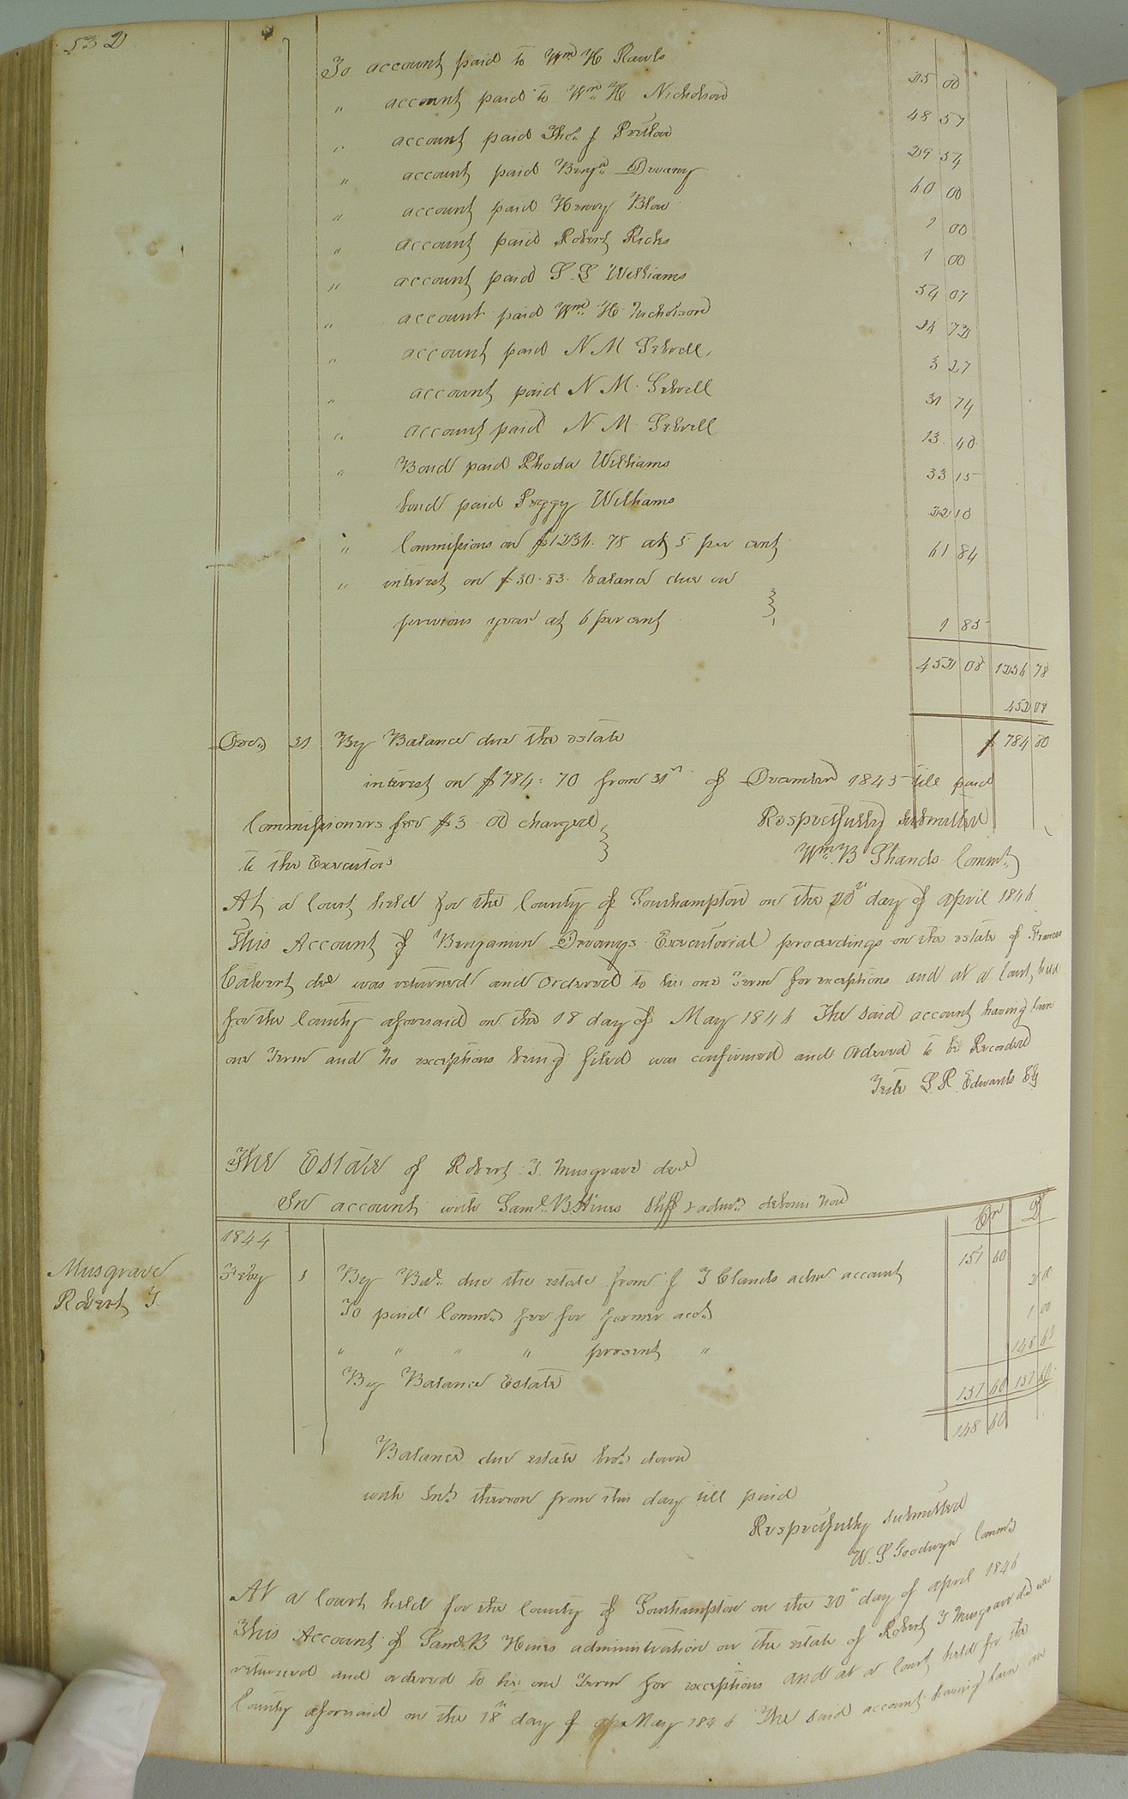 532
To account paid to Wm H Rawls 25 00
" account paid to Wm H Nicholson 48 57
" account paid Thos J Pretlow 29 54
" account paid Benjn Devany 60 00
" account paid Henry Blow 1 00
" account paid Robert Ricks 1 00
" account paid S. S Williams 54 07
" account paid Wm H Nicholson 24 72
" account paid N M Sebrell, 3 27
" account paid N M. Sebrell 31 74
" account paid N M. Sebrell 13 40
" Bond paid Rhoda Williams 33 15
bond paid Peggy Williams 32 10
" Commissions on $1236. 78 at 5 per cent 61 84
" interest on $30.83. balance due on
previous year at 6 per cent 1 85
452 08 1236 78
452 08
Decr 31 By Balance due the estate $ 784 70
interest on $784: 70 from 31st of December 1845 till paid
Commissioners fee $3.00 charged Respectfully submitted
to the Executor Wm B Shands Commr
At a Court held for the County of Southampton on the 20th day of April 1846
This Account of Benjamin Devanys Executorial proceedings on the estate of Frances
Calvert decd was returned and Ordered to lie one Term for exceptions and at a Court held
for the County aforesaid on the 18 day of May 1846 The said account having lain
one Term and no exceptions being filed was confirmed and Ordered to be Recorded
Teste L. R. Edwards Clk
The Estate of Robert T. Musgrave decd
In account with Saml B Hines Shff & admr debonis non
Cr D
1844
Musgrave
Robert T
Feby 1 By Bale due the estate from J T Clands adm account 151 60
To paid Commrs fee for former acct 2 00
" " " " present " 1 00
By Balance Estate 148 60
151 60 151 60
Balance due estate brot down 148 60
with Int thereon from this day till paid
Respectfully submitted
W. S Goodwyn Commr
At a Court held for the County of Southampton on the 20th day of April 1846
This Account of Saml B Hines administration on the estate of Robert T Musgrave decd was
returned and ordered to lie one Term for exceptions and at a Court held for the
County aforesaid on the 18th day of May 1846 The said account having lain one